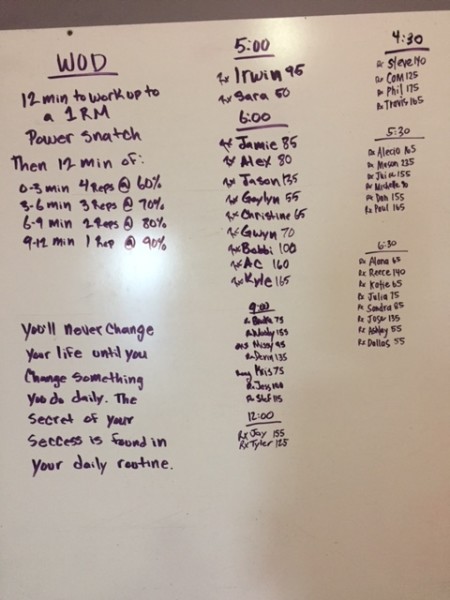 WOD
12 min to work up to
a 1RM
Power Snatch
Then 12 min of:
0-3 min 4 Reps @ 60%
3-6 min 3 Reps @ 70%
6-9 min 2 Reps @ 80%
9-12 min 1 Rep @ 90%
You'll never change
your life until you
Change something
you do daily. The
Secret of your
Seccess is found in
your daily routine.
5:00
Rx Irwin 95
Rx Sara 50
6:00
Rx Jamie 85
Rx Alex 80
Rx Jason 135
Rx Gaylyn 55
Rx Christine 65
Rx Gwyn 70
Rx Bobbi 100
Rx AC 160
Rx Kyle 165
9:00
Rx 75
Rx 155
Missy 95
Rx Devin 135
Kris 75
Rx Jess 100
Rx Stef 115
12:00
Rx Jay 155
Rx Tyler 125
4:30
Rx Steve 140
Rx Com 125
Rx Phil 175
Rx Travis 165
5:30
Rx Alecio 165
Rx Mason 225
Rx 155
Rx Michelle
Rx Dan 155
Rx Paul 165
6:30
Rx Alana 65
Rx Reece 140
Rx Katie 65
Rx Julia 75
Rx Sandra 85
Rx Jose 135
Rx Ashley 55
Rx Dallas 55